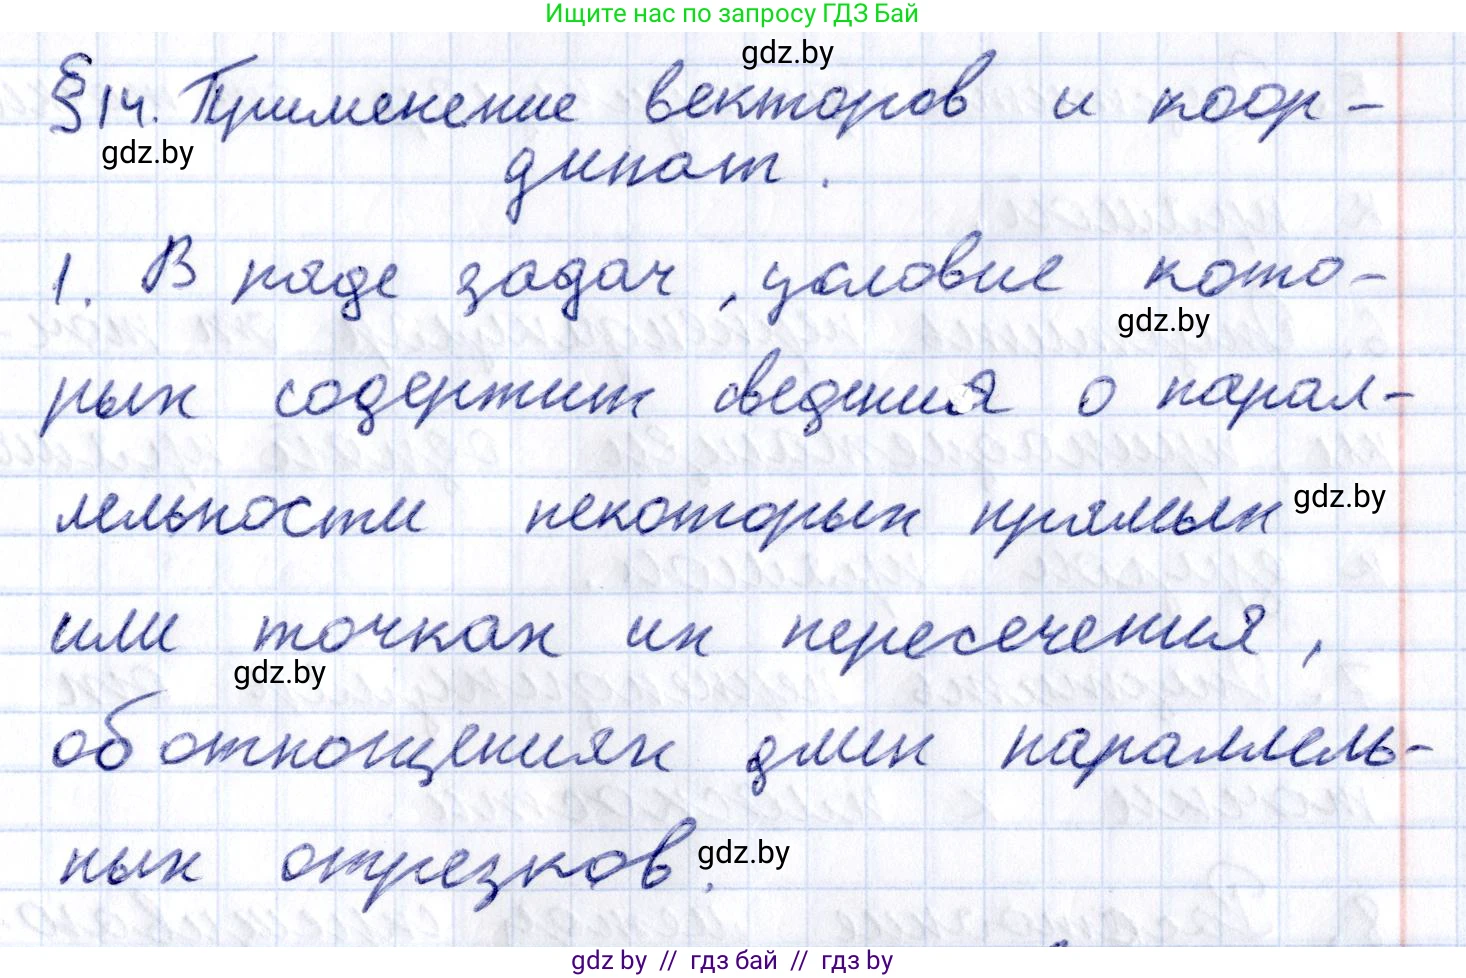 Ищите нас по запросу ГДЗ Бай
gdz.by
§14. Применение векторов и коор-
gdz.by
динат.
1. В ряде задач, условие кото-
gdz.by
рых содержит сведения о парал-
лельности некоторых прямых gdz.by
или точках их пересечения,
gdz.by
об отношениях длин параллель-
ных отрезков. gdz.by
gdz by // гдз бай // гдз by